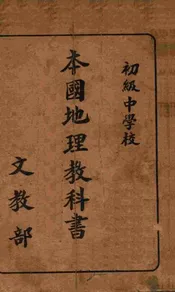 初級中學校
本國地理敎科書
文敎部